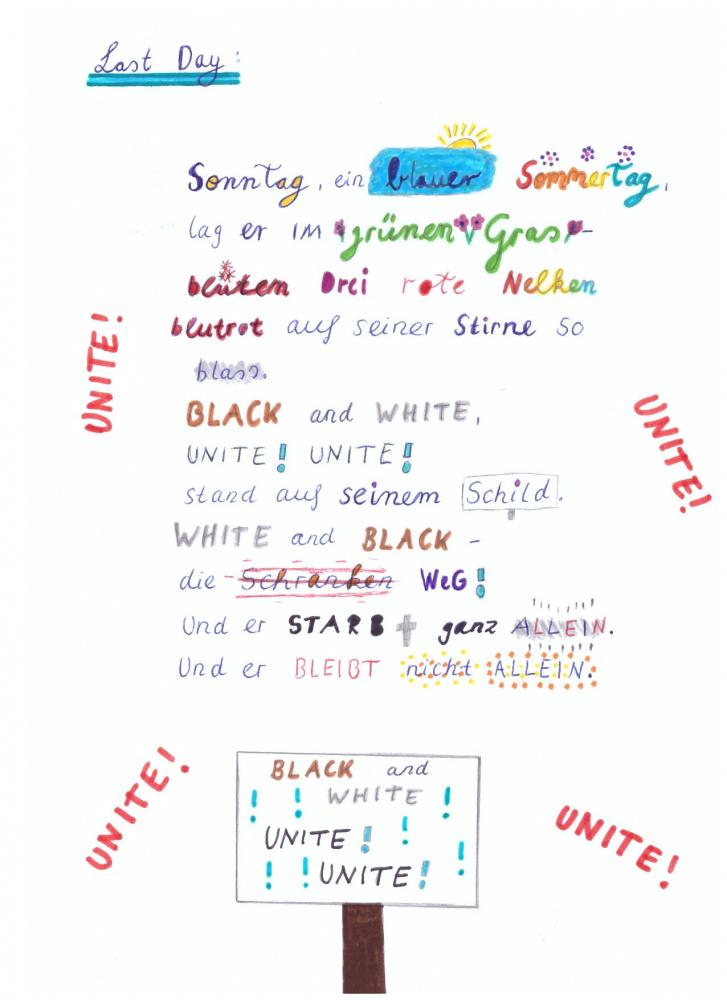 Last Day:
Sonntag, ein blauer Sommertag,
lag er im grünen Gras -
blühten Drei rote Nelken
blutrot auf seiner Stirne so
blass.
BLACK and WHITE,
UNITE! UNITE!
stand auf seinem Schild.
WHITE and BLACK -
die Schranken WeG!
Und er STARB ganz ALLEIN.
Und er BLEIBT nicht ALLEIN.
UNITE!
UNITE!
UNITE!
UNITE!
BLACK and
! ! WHITE !
UNITE! ! !
! ! UNITE!